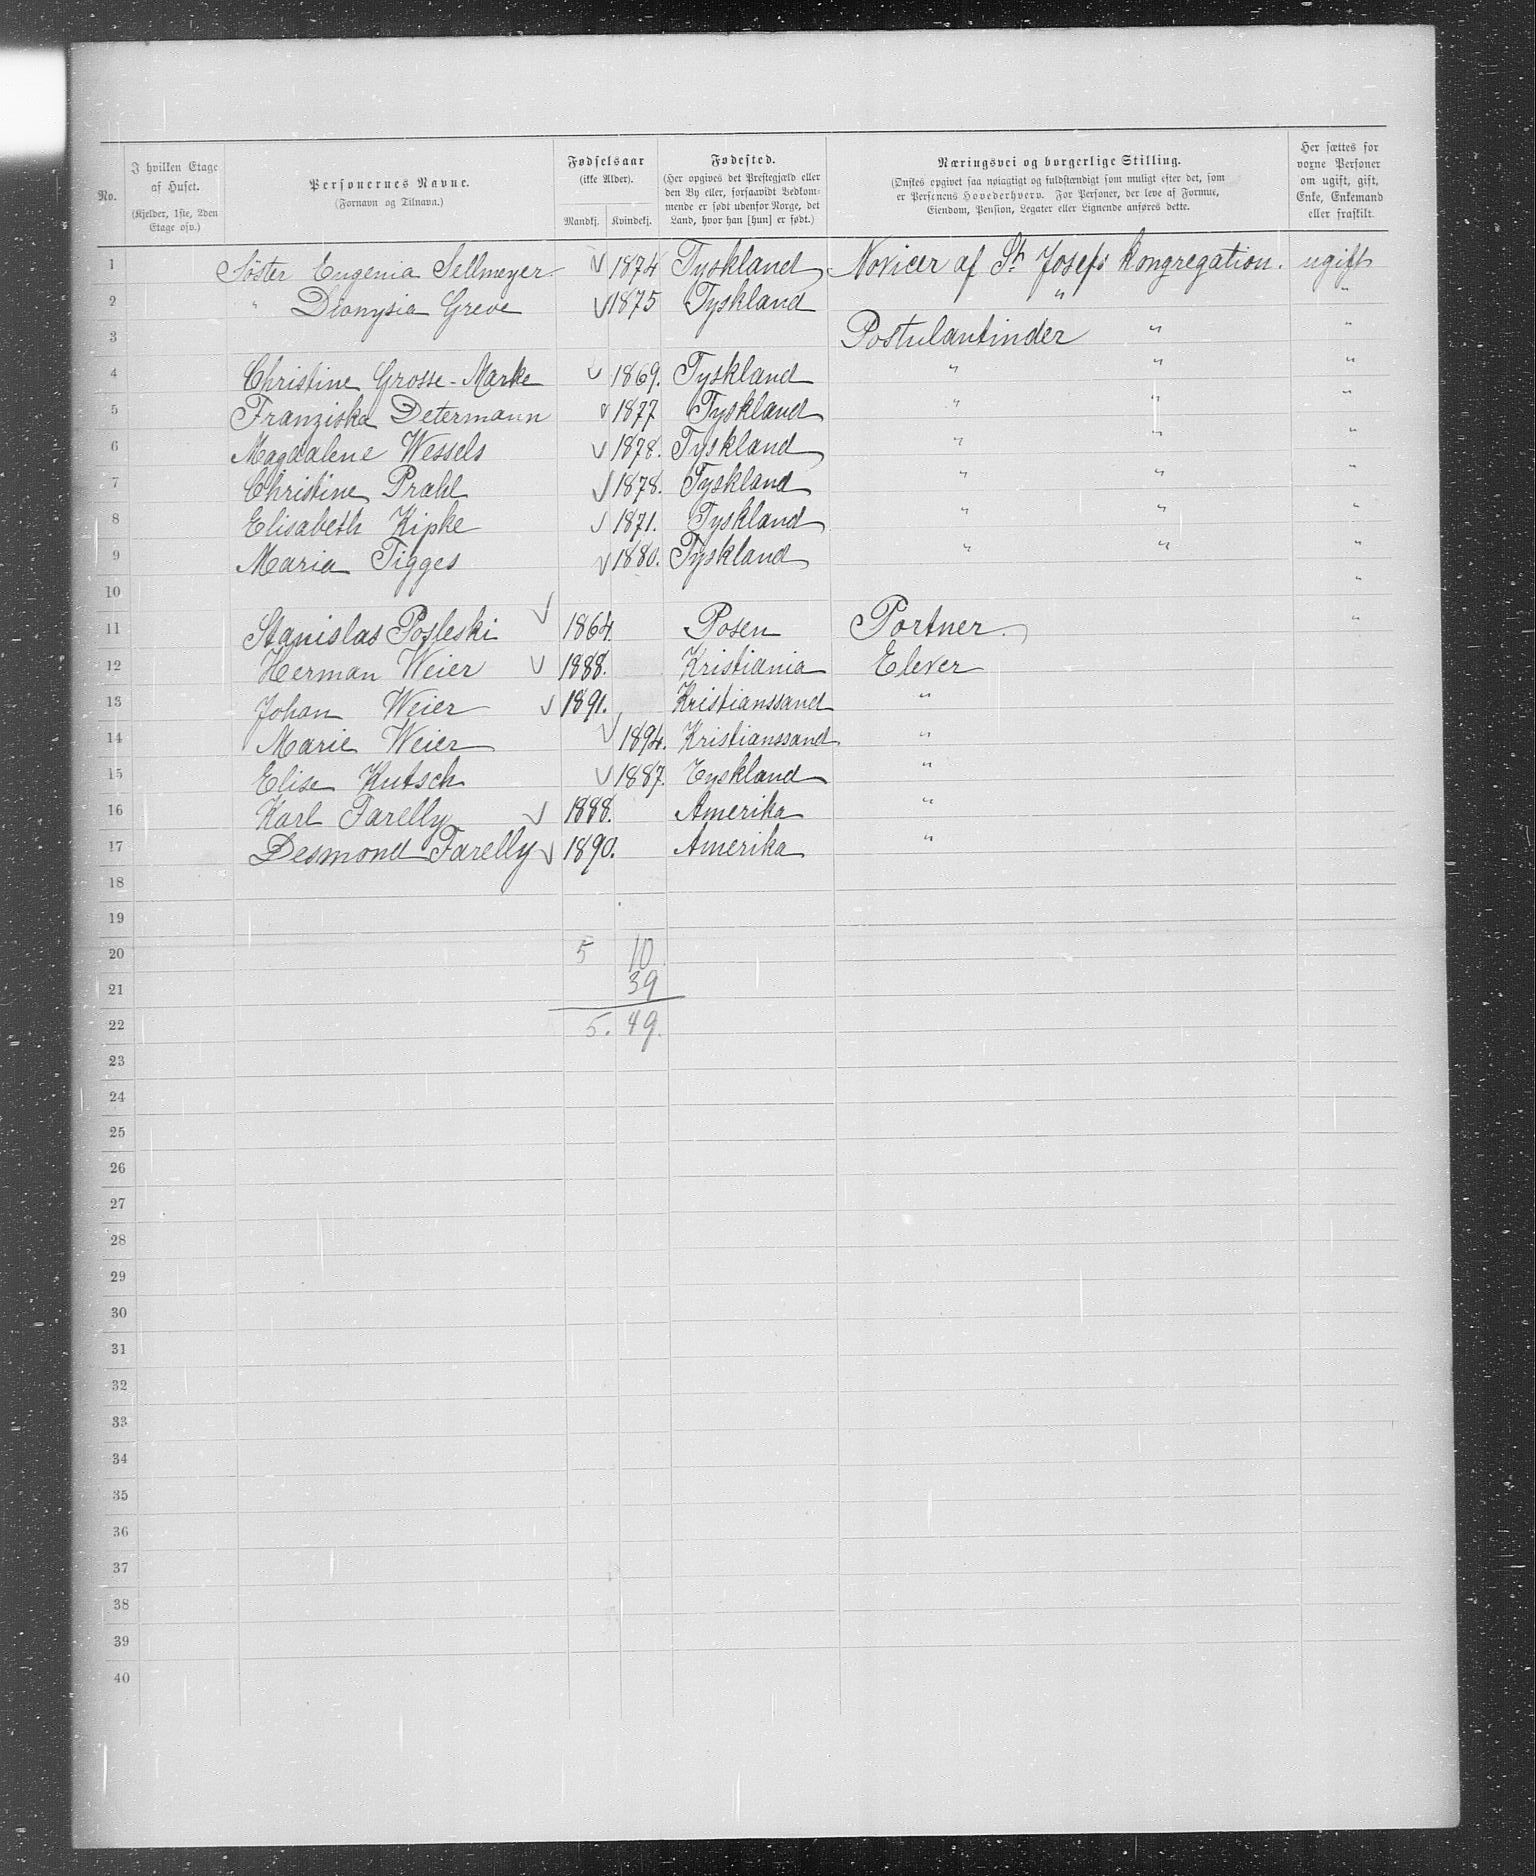 No.
I hvilken Etage af Huset.
(Kjelder, 1ste, 2den Etage osv.)
Personernes Navne.
(Fornavn og Tilnavn.)
Fødselsaar
(ikke Alder).
Mandkj. Kvindekj.
Fødested.
(Her opgives det Prestegjæld eller den By eller, forsaavidt Vedkommende er født udenfor Norge, det Land, hvor han [hun] er født.)
Næringsvei og borgerlige Stilling.
(Ønskes opgivet saa nøiagtigt og fuldstændigt som muligt efter det, som er Personens Hovederhverv. For Personer, der leve af Formue, Eiendom, Pension, Legater eller Lignende anføres dette.
Her sættes for voxne Personer om ugift, gift, Enke, Enkemand eller fraskilt.
1 Søster Eugenia Sellmeyer √ 1874 Tyskland Novicer af St. Josefs Kongregation. ugift
2 " Dionysia Greve √ 1875 Tyskland " "
3 Postulantinder " "
4 Christine Grosse-Marke √ 1869. Tyskland " " "
5 Franziska Determann √ 1877 Tyskland " " "
6 Magdalene Wessels √ 1878. Tyskland " " "
7 Christine Prahl √ 1878. Tyskland " " "
8 Elisabeth Kipke √ 1871. Tyskland " " "
9 Maria Tigges √ 1880. Tyskland " " "
10 "
11 Stanislas Posleski √ 1864. Posen Portner. "
12 Herman Weier √ 1888. Kristiania Elever
13 Johan Weier √ 1891. Kristianssand "
14 Marie Weier √ 1894. Kristianssand "
15 Elise Kutsch √ 1887. Tyskland "
16 Karl Farelly √ 1888. Amerika "
17 Desmond Farelly √ 1890. Amerika "
18
19
20 5 10.
21 39
22 5. 49.
23
24
25
26
27
28
29
30
31
32
33
34
35
36
37
38
39
40